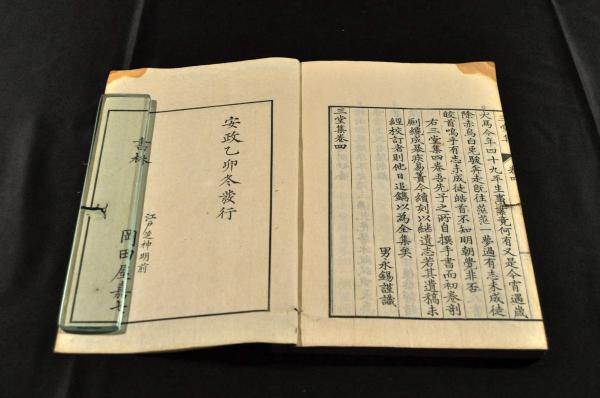 三堂集 卷四
犬馬今年四十九平生事業竟何有又是今宵遇歲
除赤烏白兔駿奔走旣往茫茫一夢過有志未成徒
皓首嗚乎有志未成徒皓首不知明朝覺非否
右三堂集四卷吾先子之所自撰手書而初卷剞
劂纔成易簀今續刻以継遺志若其遺稿未
經校訂者則他日追鐫以為全集矣
男永錫謹識
三堂集卷四
安政乙卯冬發行
江戸芝神明前
書林
岡田屋嘉七